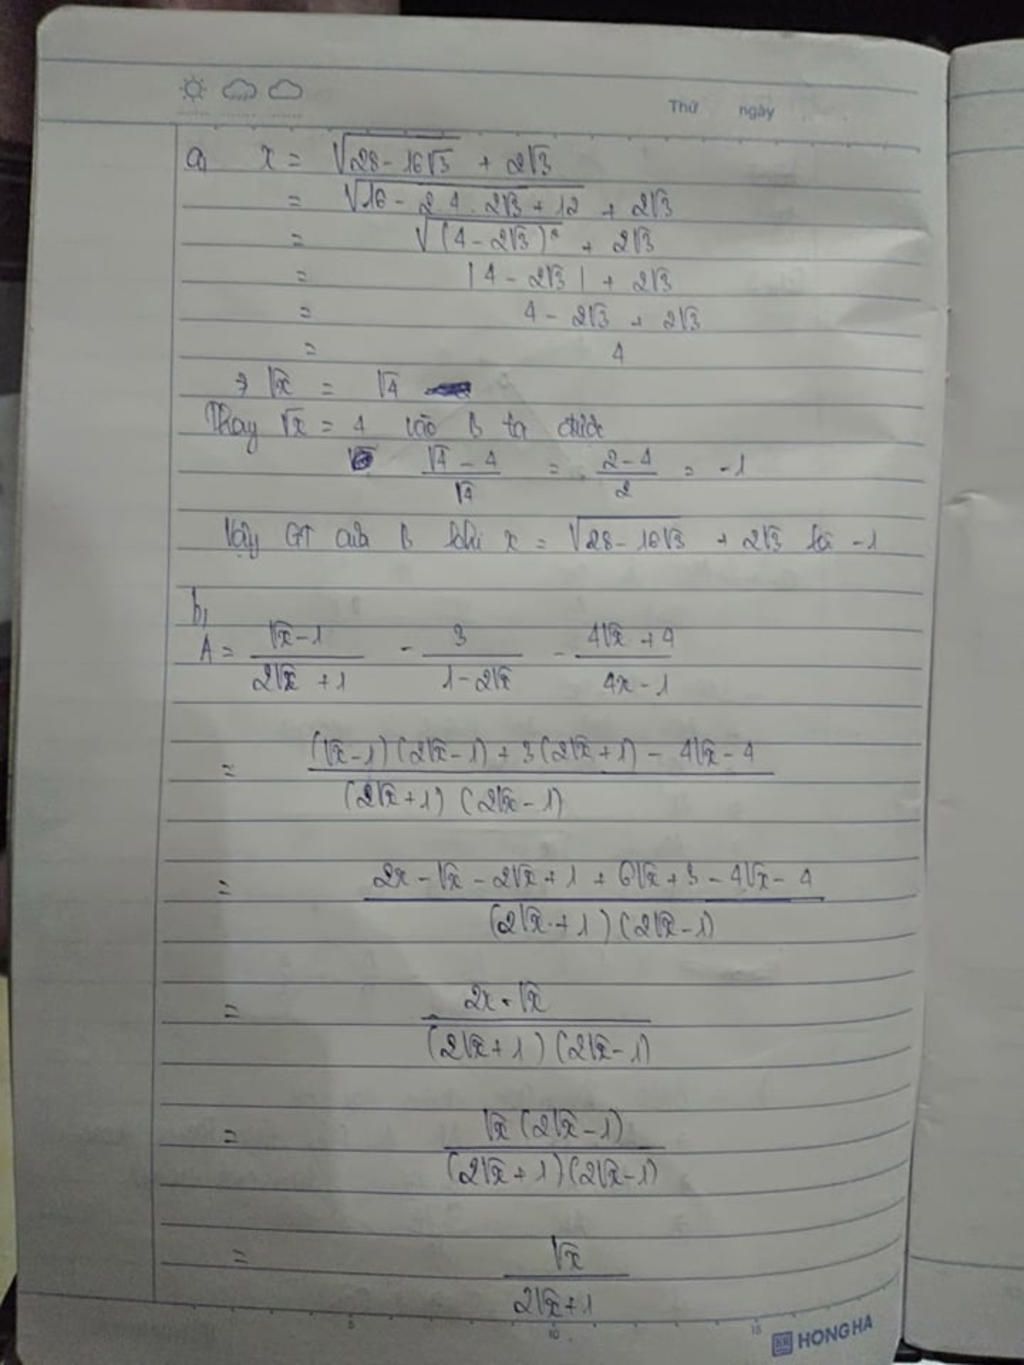 Thứ ngày
a) x = √(28 - 16√3) + 2√3
= √(16 - 2.4.2√3 + 12) + 2√3
= √((4 - 2√3)²) + 2√3
= |4 - 2√3| + 2√3
= 4 - 2√3 + 2√3
= 4
⇒ √x = √4
Thay √x = 4 vào B ta được
(√4 - 4)/√4 = (2 - 4)/2 = -1
Vậy GT của B khi x = √(28 - 16√3) + 2√3 là -1
b,
A = (√x - 1)/(2√x + 1) - 3/(1 - 2√x) - (4√x + 4)/(4x - 1)
= ((√x - 1)(2√x - 1) + 3(2√x + 1) - 4√x - 4)/((2√x + 1)(2√x - 1))
= (2x - √x - 2√x + 1 + 6√x + 3 - 4√x - 4)/((2√x + 1)(2√x - 1))
= (2x - √x)/((2√x + 1)(2√x - 1))
= (√x(2√x - 1))/((2√x + 1)(2√x - 1))
= √x/(2√x + 1)
5 10 15
HONG HA